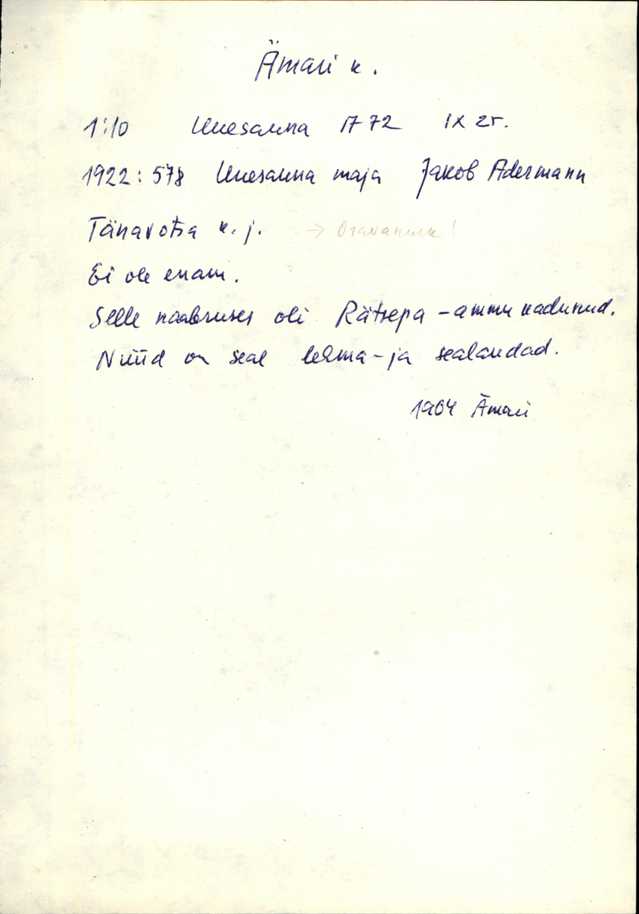 Ämari k.
1:10 Uuesauna A 72 IX zr.
1922: 578 Uuesauna maja Jakob Adermann
Tänavotsa k. j. →
Ei ole enam.
Selle naabruses oli Rätsepa - ammu kadunud.
Nüüd on seal lehma- ja sealaudad.
1964 Ämari